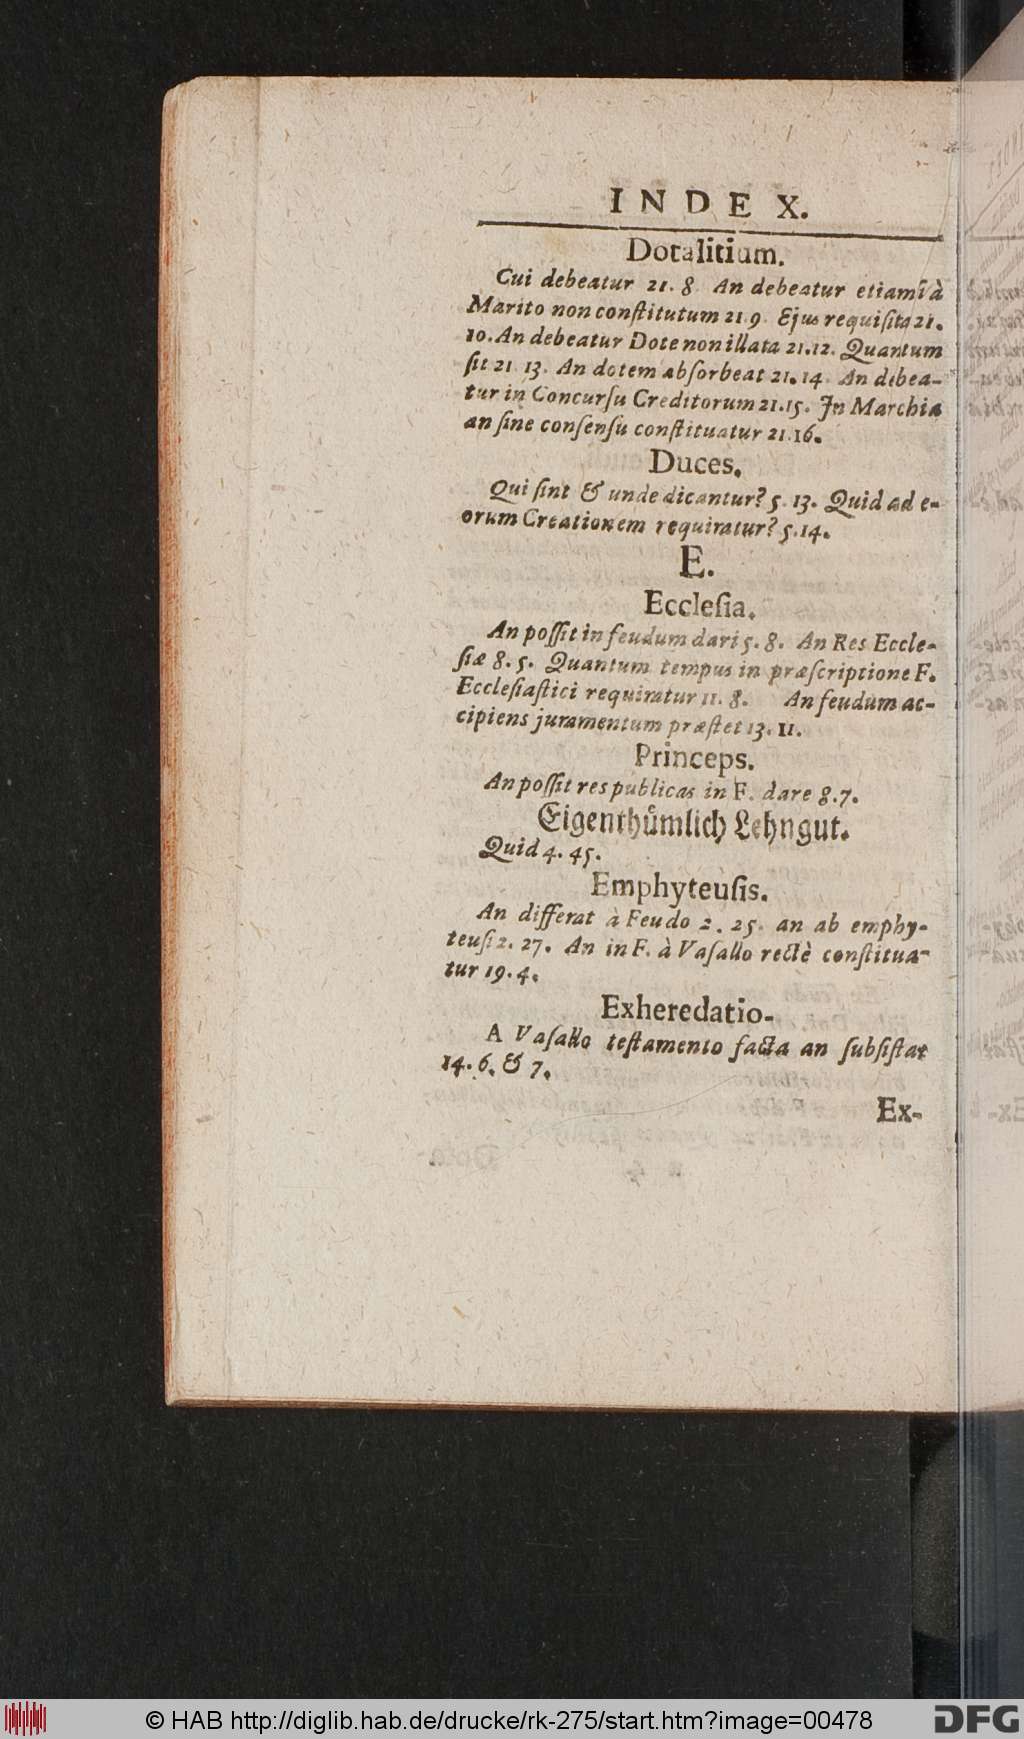 INDEX.
Dotalitium.
Cui debeatur 21. 8. An debeatur etiamſi à
Marito non conſtitutum 21 9. Ejus requiſita 21.
10. An debeatur Dote non illata 21.12. Quantum
ſit 21 13. An dotem abſorbeat 21. 14 An debea-
tur in Concurſu Creditorum 21.15. In Marchia
an ſine conſenſu conſtituatur 21.16.
Duces.
Qui ſint & unde dicantur? 5. 13. Quid ad e-
orum Creationem requiratur? 5.14.
E.
Eccleſia.
An poſſit in feudum dari 5. 8. An Res Eccle-
ſiæ 8. 5. Quantum tempus in præſcriptione F.
Eccleſiaſtici requiratur 11. 8. An feudum ac-
cipiens juramentum præſtet 13. 11.
Princeps.
An poſſit res publicas in F. dare 8.7.
Eigenthümlich Lehngut.
Quid 4. 45.
Emphyteuſis.
An differat à Feudo 2. 25. an ab emphy-
teuſi 2. 27. An in F. à Vaſallo rectè conſtitua-
tur 19. 4.
Exheredatio-
A Vaſallo teſtamento facta an ſubſiſtat
14. 6. & 7.
Ex-
© HAB http://diglib.hab.de/drucke/rk-275/start.htm?image=00478
DFG